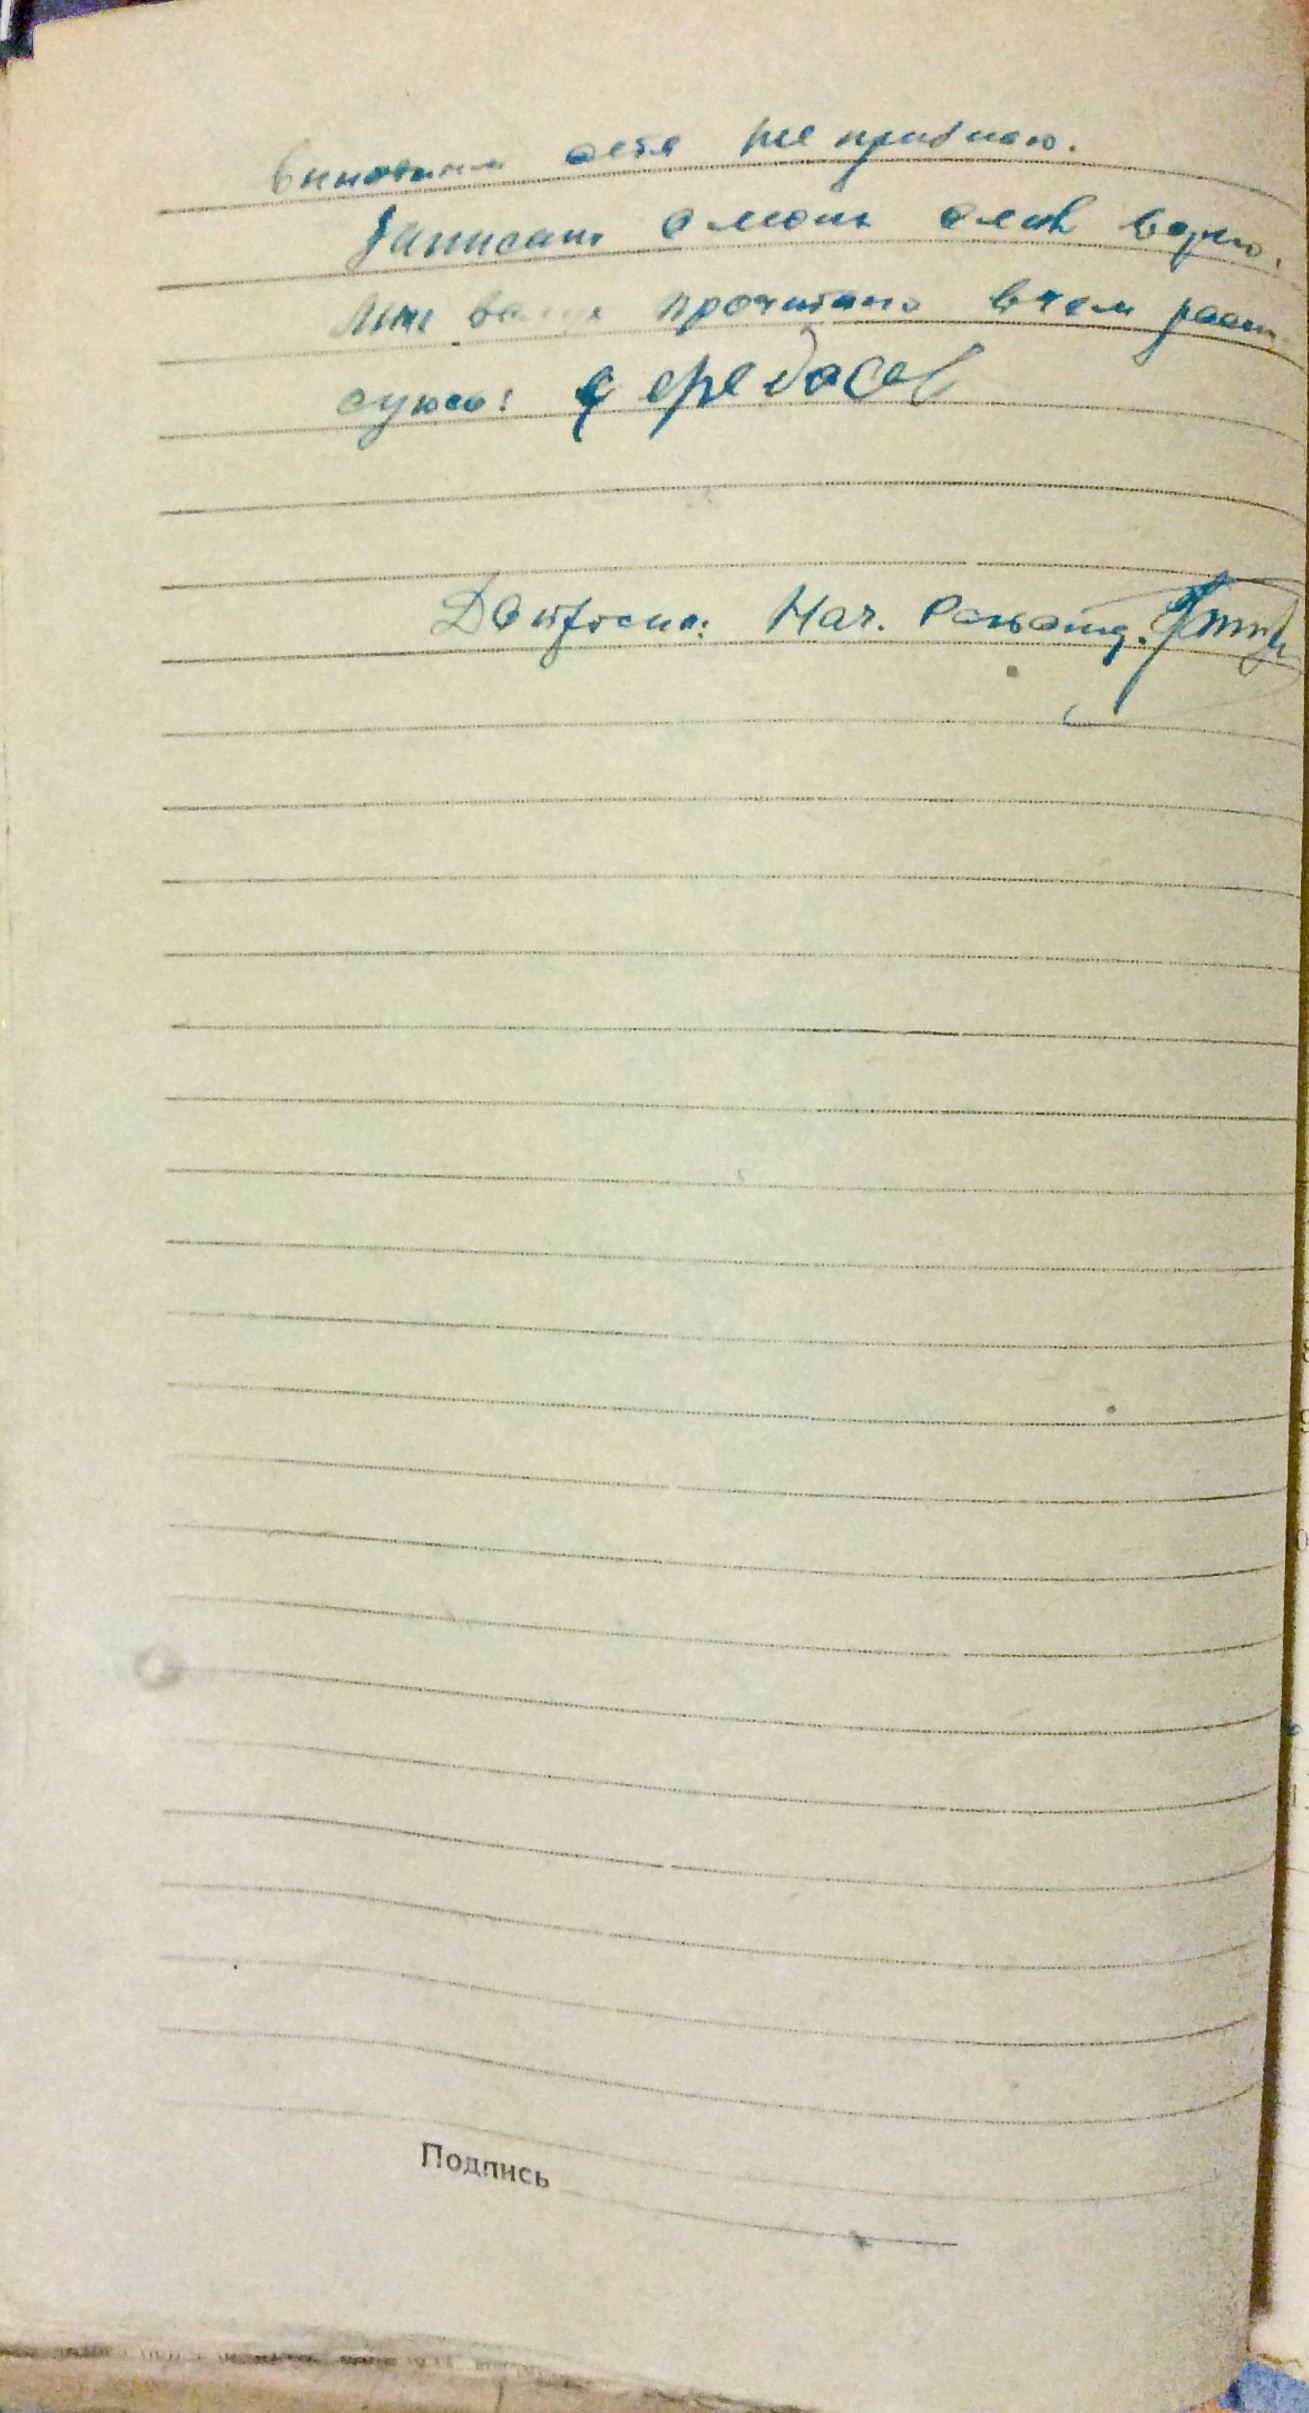 виновным себя не признаю.
Записано с моих слов верно.
Мне вслух прочитано в чем распи
суюсь:
Допросил: Нач.
Подпись